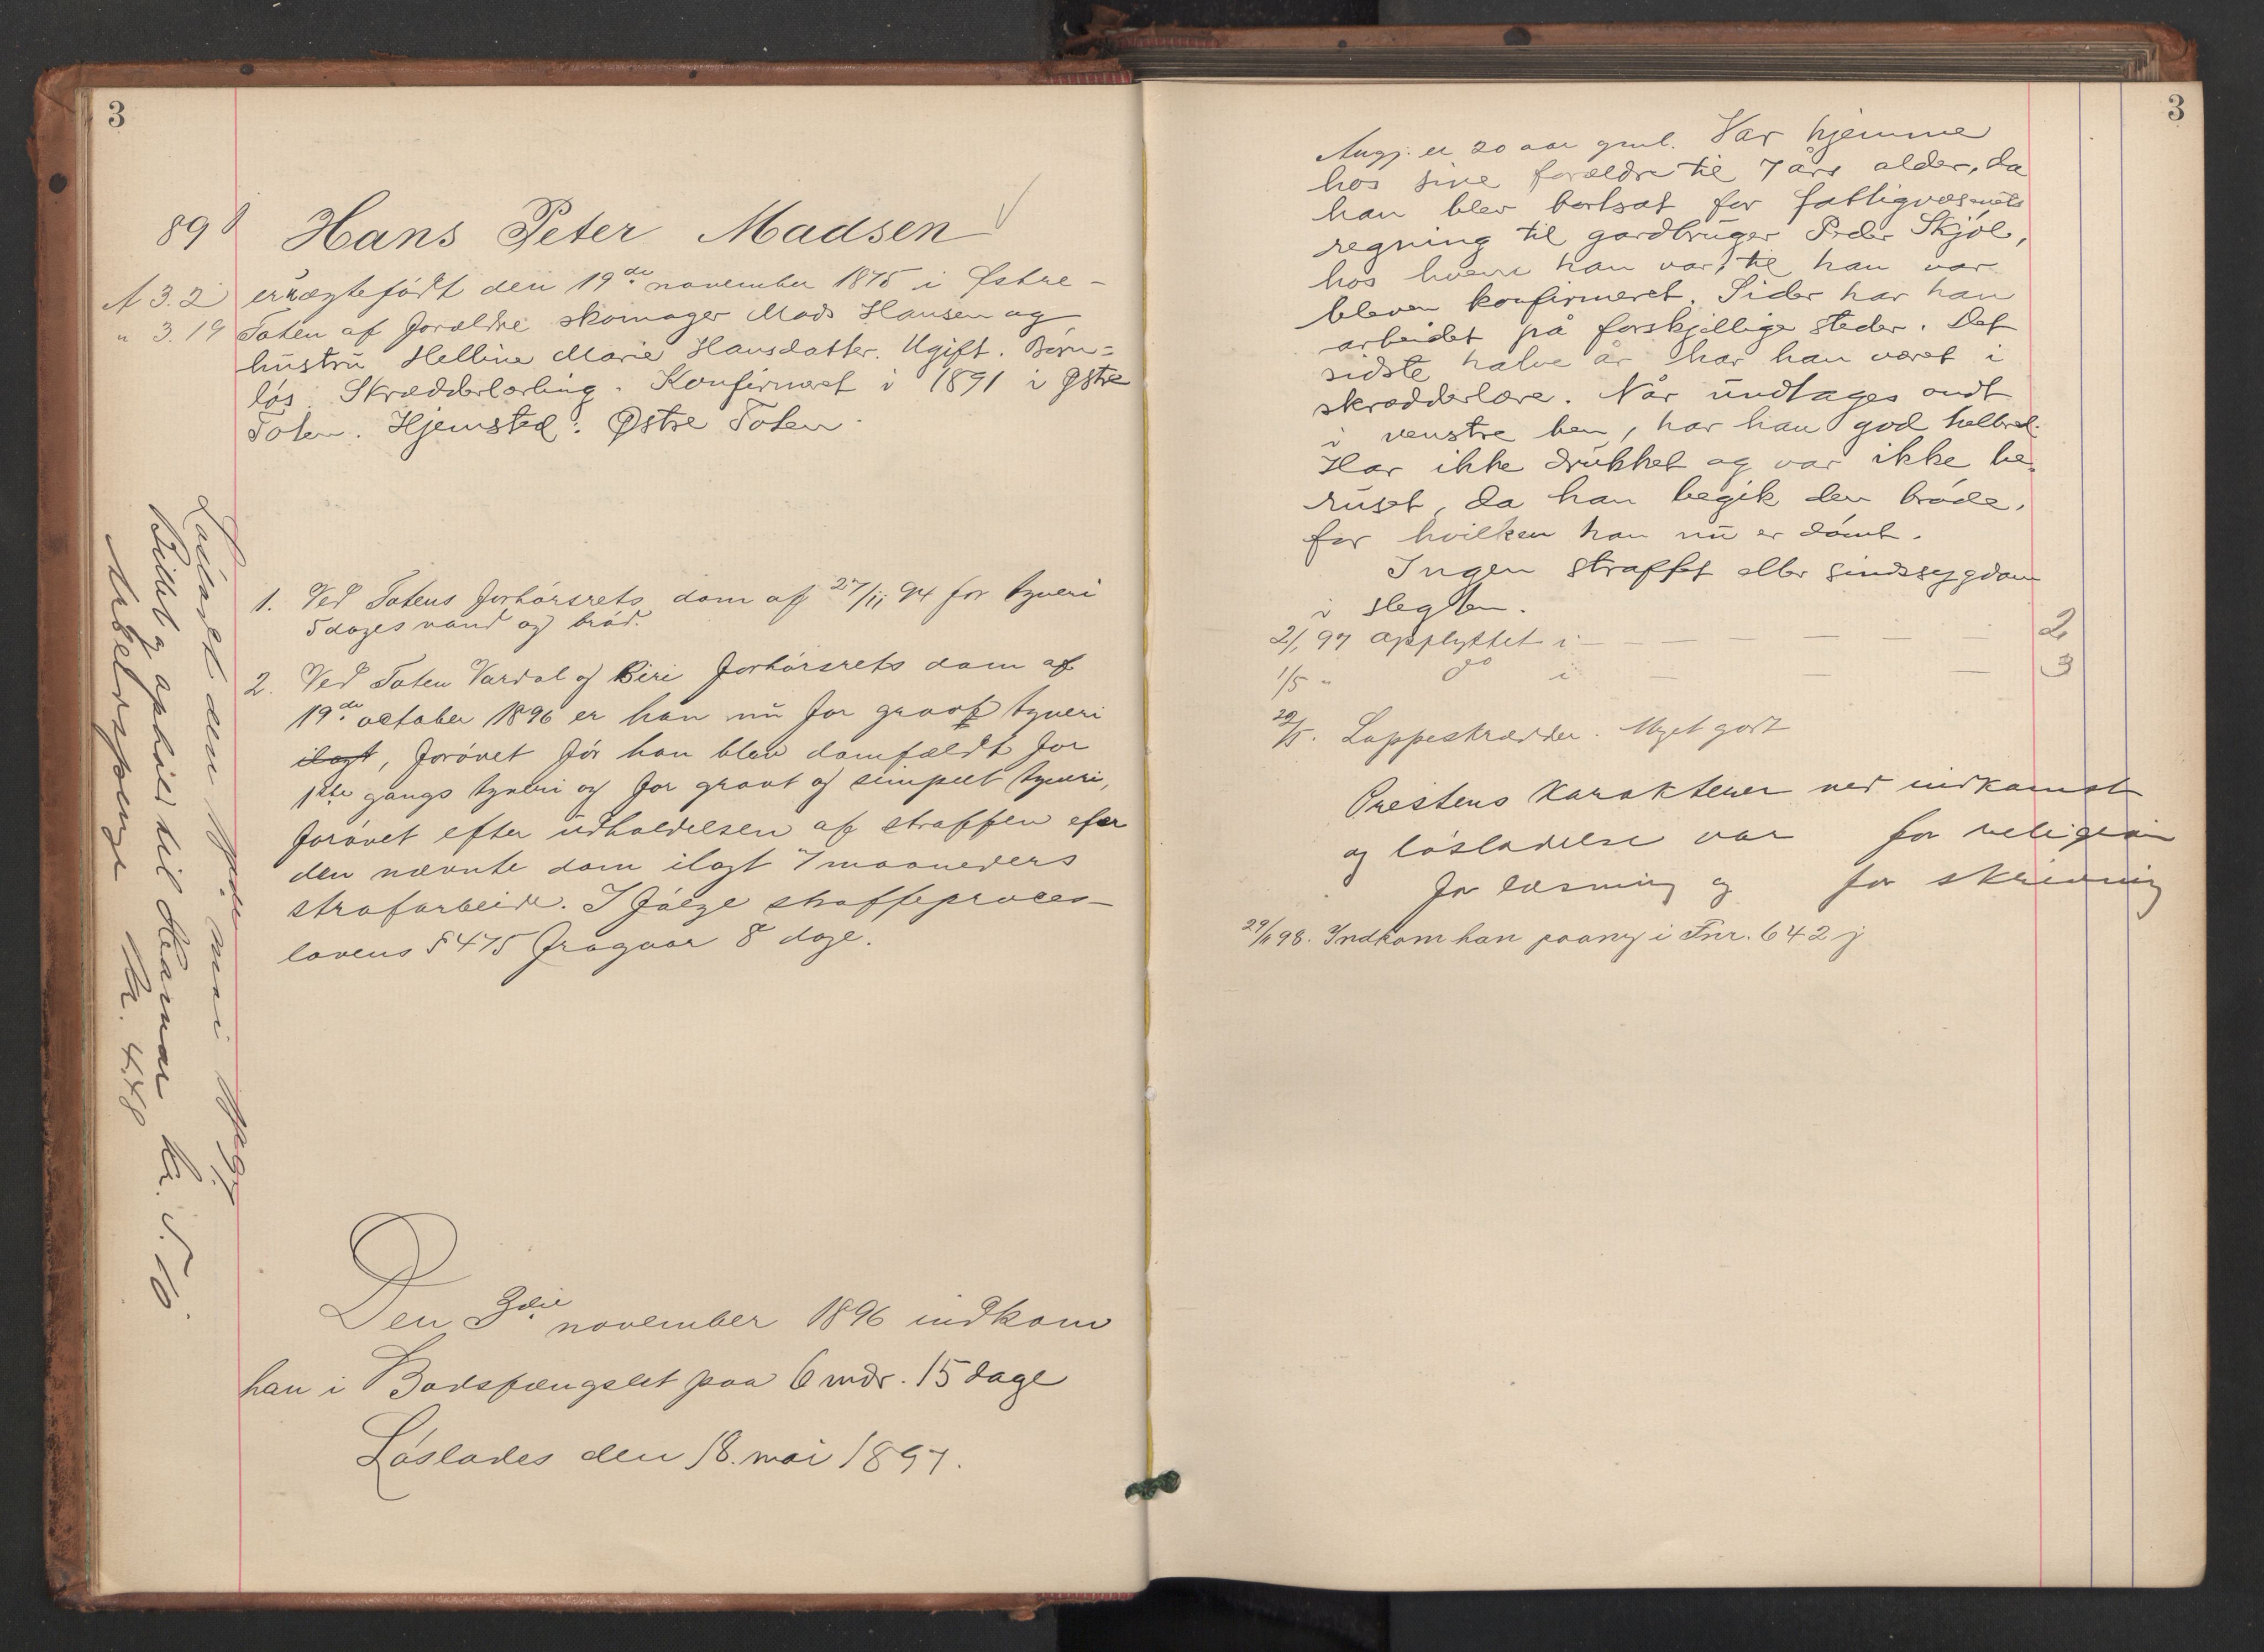 3
89
Hans Peter Madsen
A 3.2
er ægtefødt den 19de november 1875 i Østre-
" 3.19
Toten af forældre skomager Mads Hansen og
hustru Helline Marie Hansdatter. Ugift. Børn=
løs. Skrædderlærling. Konfirmeret i 1891 i Østre
Toten. Hjemsted: Østre Toten.
1. Ved Totens forhørsrets dom af 27/11 94 for tyveri
5 dages vand og brød.
2. Ved Toten Vardal og Biri forhørsrets dom af
19de october 1896 er han nu for grovt tyveri
ilagt, forøvet før han blev domfældt for
1ste gangs tyveri og for grovt og simpelt tyveri,
forøvet efter udholdelsen af straffen efter
den nævnte dom ilagt 7 maaneders
strafarbeide. I følge straffeproces-
lovens § 475 fragaar 8 dage.
Den 3die november 1896 indkom
han i Bodsfængslet paa 6 mdr. 15 dage
Løslades den 18. mai 1897.
Løsladt den 18de mai 1897
Billet og ophold til Hamar kr. 5.10.
Arbeidspenge kr. 4.48
3
Angj. er 20 aar gml. Var hjemme
hos sine forældre til 7 års alder, da
han blev bortsat for fattigvæsenets
regning til gardbruger Peder Skjøl,
hos hvem han var, til han var
bleven konfirmeret. Sider har han
arbeidet på forskjellige steder. Det
sidste halve år har han været i
skrædderlære. Når undtages ondt
i venstre ben, har han god helbred.
Har ikke drukket og var ikke be-
ruset, da han begik den brøde,
for hvilken han nu er dømt.
Ingen straffet eller sindssygdom
i slegten.
2/1 97 opflyttet i — — — — — — 2
1/5 " do i — — — 3
20/5. Lappeskrædder. Myget godt
Prestens karakterer ved indkomst
og løsladelse var for religion
for læsning og for skrivning
29/11 98. Indkom han paany i Fnr. 642 j